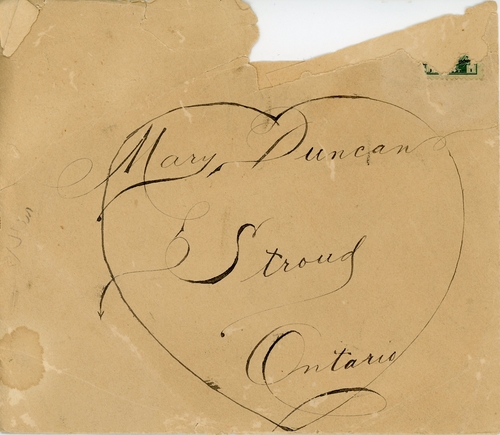 Mary Duncan
Stroud
Ontario